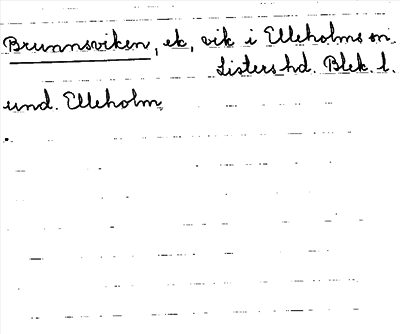 Brunnsviken, ek, vik i Elleholms sn.
Listers hd. Blek. l.
und. Elleholm